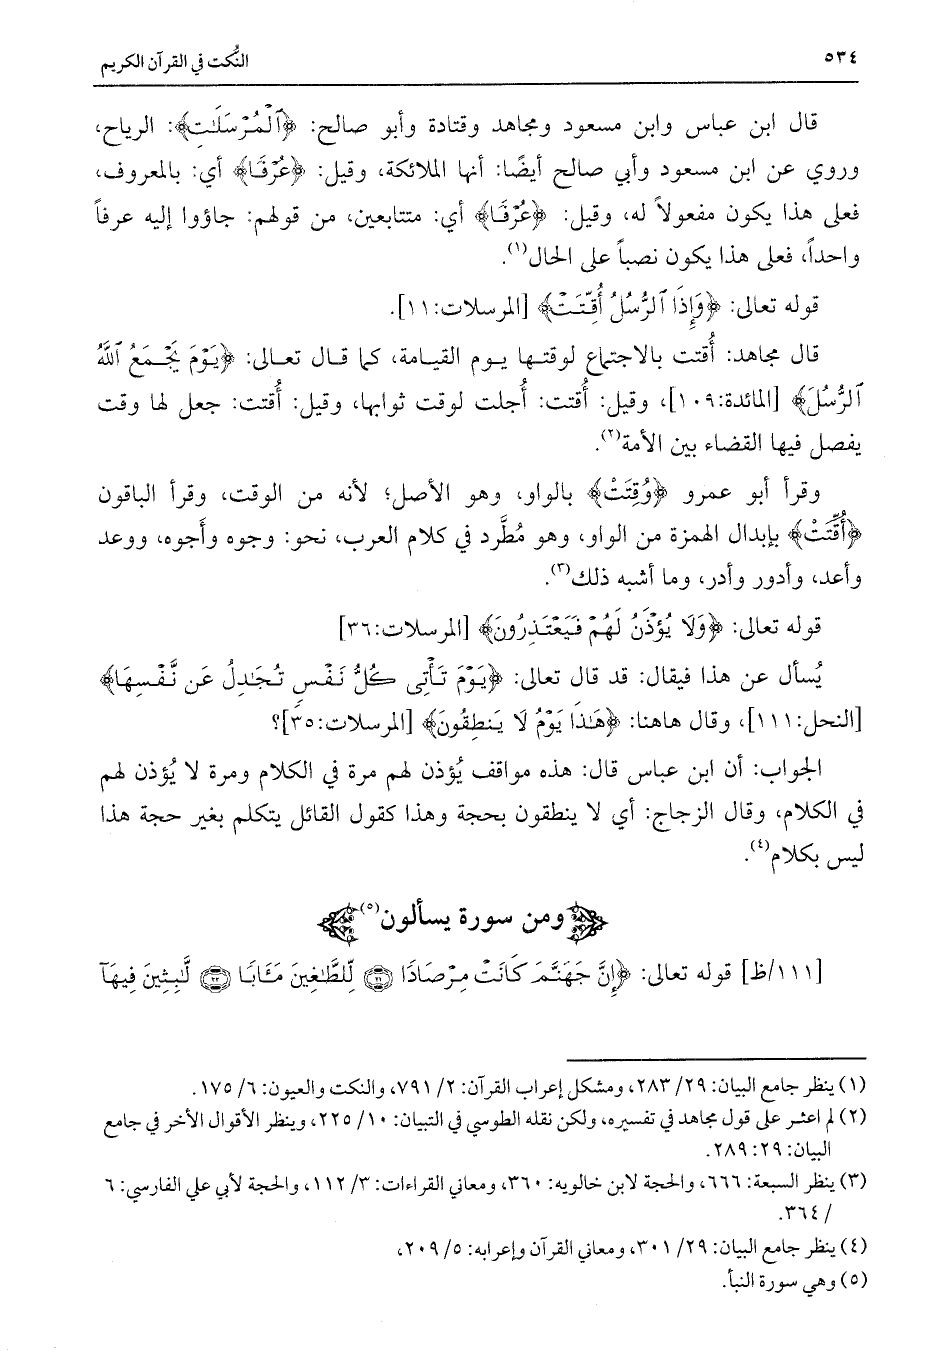 ٥٣٤
النُّكت في القرآن الكريم
قال ابن عباس وابن مسعود ومجاهد وقتادة وأبو صالح: ﴿ٱلْمُرْسَلَٰتِ﴾: الرياح،
وروي عن ابن مسعود وأبي صالح أيضًا: أنها الملائكة، وقيل: ﴿عُرْفًا﴾ أي: بالمعروف،
فعلى هذا يكون مفعولاً له، وقيل: ﴿عُرْفًا﴾ أي: متتابعين، من قولهم: جاؤوا إليه عرفاً
واحداً، فعلى هذا يكون نصباً على الحال(١).
قوله تعالى: ﴿وَإِذَا ٱلرُّسُلُ أُقِّتَتْ﴾ [المرسلات:١١].
قال مجاهد: أُقتت بالاجتماع لوقتها يوم القيامة، كما قال تعالى: ﴿يَوْمَ يَجْمَعُ ٱللَّهُ
ٱلرُّسُلَ﴾ [المائدة:١٠٩]، وقيل: أُقتت: أُجلت لوقت ثوابها، وقيل: أُقتت: جعل لها وقت
يفصل فيها القضاء بين الأمة(٢).
وقرأ أبو عمرو ﴿وُقِتَتْ﴾ بالواو، وهو الأصل؛ لأنه من الوقت، وقرأ الباقون
﴿أُقِّتَتْ﴾ بإبدال الهمزة من الواو، وهو مُطَّرد في كلام العرب، نحو: وجوه وأجوه، ووعد
وأعد، وأدور وأدر، وما أشبه ذلك(٣).
قوله تعالى: ﴿وَلَا يُؤْذَنُ لَهُمْ فَيَعْتَذِرُونَ﴾ [المرسلات:٣٦]
يُسأل عن هذا فيقال: قد قال تعالى: ﴿يَوْمَ تَأْتِى كُلُّ نَفْسٍ تُجَٰدِلُ عَن نَّفْسِهَا﴾
[النحل:١١١]، وقال هاهنا: ﴿هَٰذَا يَوْمُ لَا يَنطِقُونَ﴾ [المرسلات:٣٥]؟
الجواب: أن ابن عباس قال: هذه مواقف يُؤذن لهم مرة في الكلام ومرة لا يُؤذن لهم
في الكلام، وقال الزجاج: أي لا ينطقون بحجة وهذا كقول القائل يتكلم بغير حجة هذا
ليس بكلام(٤).
ومن سورة يسألون(٥)
[١١١/ظ] قوله تعالى: ﴿إِنَّ جَهَنَّمَ كَانَتْ مِرْصَادًا ٢١ لِّلطَّٰغِينَ مَـَٔابًا ٢٢ لَّٰبِثِينَ فِيهَآ
(١) ينظر جامع البيان: ٢٩/ ٢٨٣، ومشكل إعراب القرآن: ٢/ ٧٩١، والنكت والعيون: ٦/ ١٧٥.
(٢) لم اعثر على قول مجاهد في تفسيره، ولكن نقله الطوسي في التبيان: ١٠/ ٢٢٥، وينظر الأقوال الأخر في جامع
البيان: ٢٩: ٢٨٩.
(٣) ينظر السبعة: ٦٦٦، والحجة لابن خالويه: ٣٦٠، ومعاني القراءات: ٣/ ١١٢، والحجة لأبي علي الفارسي: ٦
/ ٣٦٤.
(٤) ينظر جامع البيان: ٢٩/ ٣٠١، ومعاني القرآن وإعرابه: ٥/ ٢٠٩،
(٥) وهي سورة النبأ.